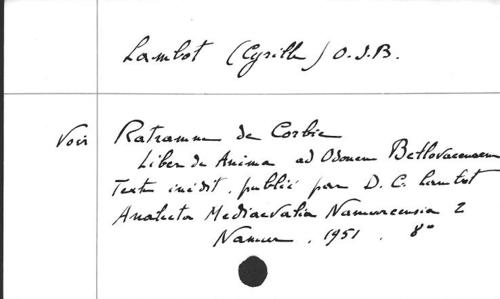 Lambot (Cyrille) O.S.B.
Voir Ratramne de Corbie
Liber de Anima ad Odonem Bellovacensem
Texte inédit, publié par D. C. Lambot
Analecta Mediaevalia Namurcensia 2
Namur, 1951. 8°